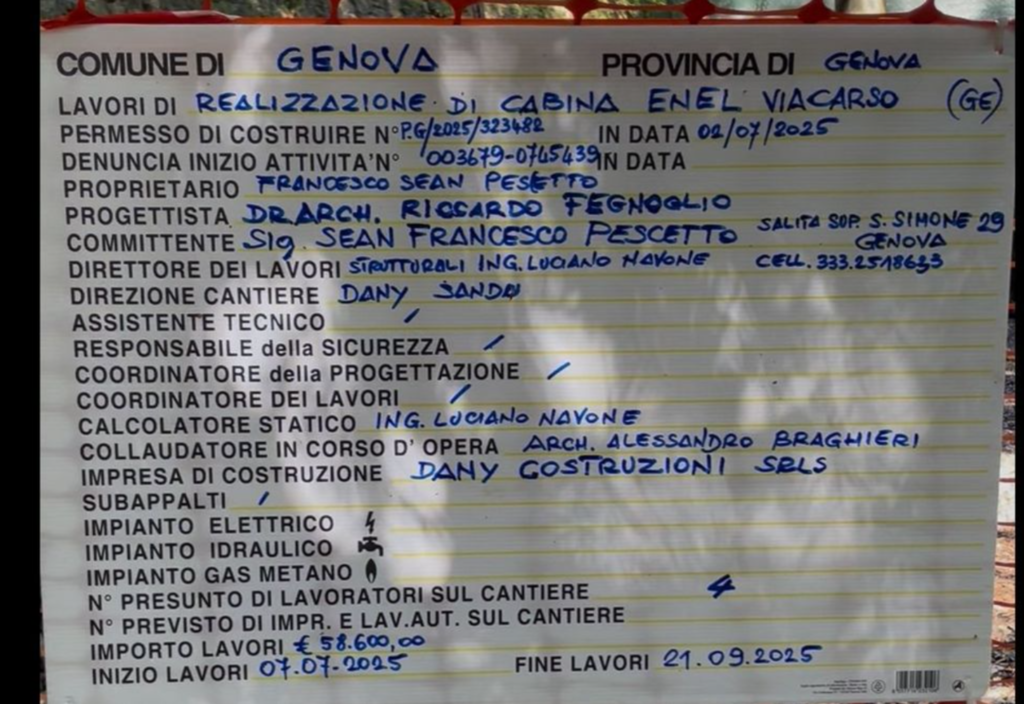 COMUNE DI GENOVA PROVINCIA DI GENOVA
LAVORI DI REALIZZAZIONE DI CABINA ENEL VIA CARSO (GE)
PERMESSO DI COSTRUIRE N° P.G/2025/323482 IN DATA 02/07/2025
DENUNCIA INIZIO ATTIVITA' N° 003679-0745439 IN DATA
PROPRIETARIO FRANCESCO SEAN PESETTO
PROGETTISTA DR.ARCH. RICCARDO FEGNOGLIO
COMMITTENTE Sig. SEAN FRANCESCO PESCETTO SALITA SUP. S. SIMONE 29
GENOVA
DIRETTORE DEI LAVORI STRUTTURALI ING. LUCIANO NAVONE CELL. 333.2518633
DIREZIONE CANTIERE DANY
ASSISTENTE TECNICO /
RESPONSABILE della SICUREZZA /
COORDINATORE della PROGETTAZIONE /
COORDINATORE DEI LAVORI /
CALCOLATORE STATICO ING. LUCIANO NAVONE
COLLAUDATORE IN CORSO D' OPERA ARCH. ALESSANDRO BRAGHIERI
IMPRESA DI COSTRUZIONE DANY COSTRUZIONI SRLS
SUBAPPALTI /
IMPIANTO ELETTRICO
IMPIANTO IDRAULICO
IMPIANTO GAS METANO
N° PRESUNTO DI LAVORATORI SUL CANTIERE 4
N° PREVISTO DI IMPR. E LAV.AUT. SUL CANTIERE
IMPORTO LAVORI € 58.600,00
INIZIO LAVORI 07.07.2025 FINE LAVORI 21.09.2025